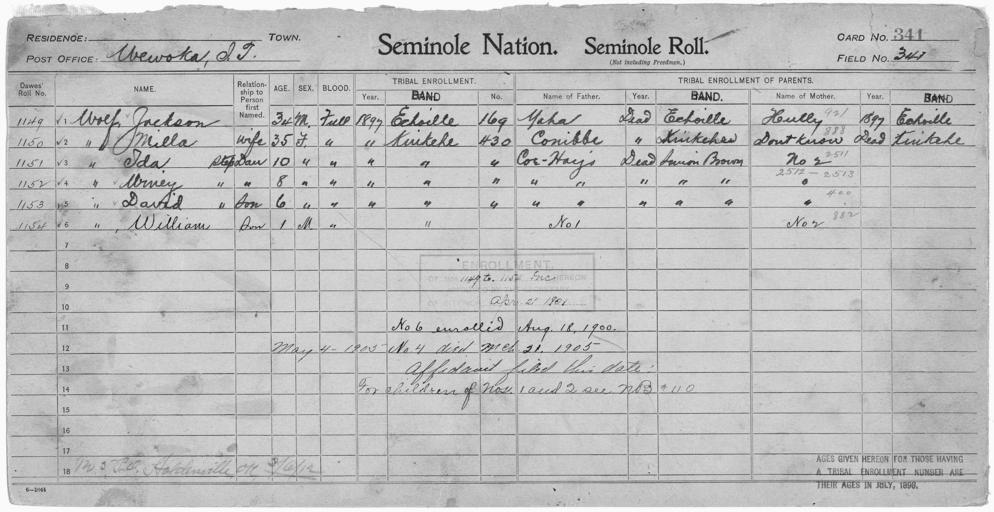 RESIDENCE: TOWN.
POST OFFICE: Wewoka, I.T.
Seminole Nation. Seminole Roll.
(Not including Freedmen.)
CARD NO. 341
FIELD NO. 341
Dawes' Roll No. NAME. Relationship to Person first Named. AGE. SEX. BLOOD. TRIBAL ENROLLMENT. TRIBAL ENROLLMENT OF PARENTS.
Year. BAND No. Name of Father. Year. BAND. Name of Mother. Year. BAND
1149 1 Wolf, Jackson 34 M. Full 1897 Echoille 169 Yaha Dead Echoille Hully 921 1897 Echoille
1150 2 " Milla wife 35 F. " " Kinkehe 430 Conibbe " Kinkehee Dont Know 888 Dead Kinkehe
1151 3 " Ida Step Dau 10 " " " " " Coe-Hays Dead Simon Brown No 2 2511
1152 4 " Winey " " 8 " " " " " " " " " " " 2512-2513
1153 5 " David " Son 6 " " " " " " " " " " " 400
1154 6 " William Son 1 M " " No 1 No 2 882
7
8
ENROLLMENT.
9 1149 to 1154 Inc HEREON
10 Apr. 2, 1901
11 No 6 enrolled Aug. 18, 1900.
12 May 4-1905 No 4 died Mch 21, 1905
13 Affidavit filed this date:
14 For children of Nos. 1 and 2 see NB #110
15
16
17
18 Holdenville Ok 3/6/12
AGES GIVEN HEREON FOR THOSE HAVING
A TRIBAL ENROLLMENT NUMBER ARE
THEIR AGES IN JULY, 1898.